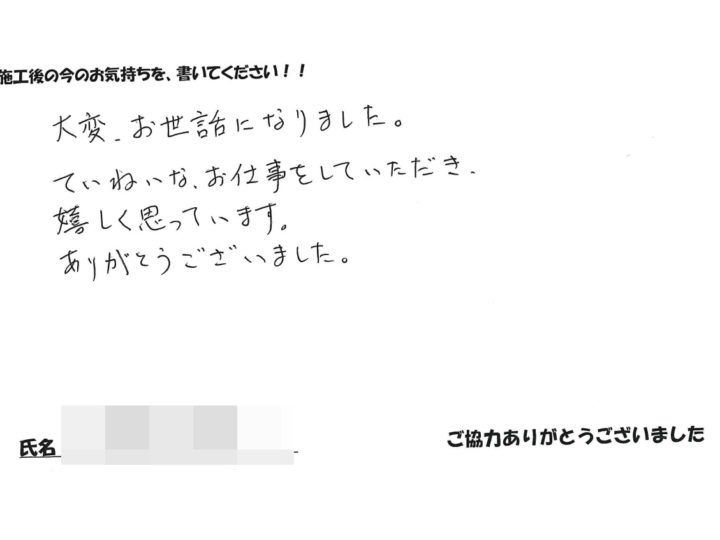 施工後の今のお気持ちを、書いてください！！
大変、お世話になりました。
ていねいな、お仕事をしていただき、
嬉しく思っています。
ありがとうございました。
氏名
ご協力ありがとうございました